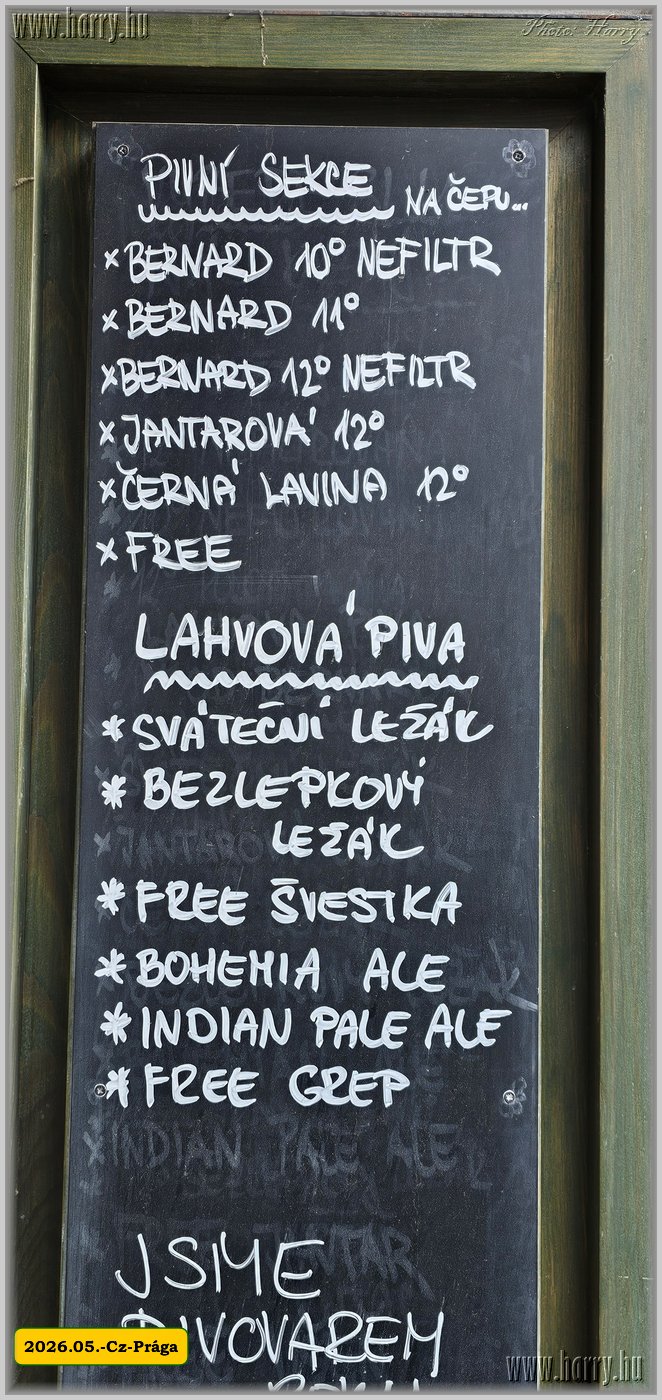 www.harry.hu
Photo: Harry
PIVNÍ SEKCE NA ČEPU...
×BERNARD 10° NEFILTR
×BERNARD 11°
×BERNARD 12° NEFILTR
×JANTAROVÁ 12°
×ČERNÁ LAVINA 12°
×FREE
LAHVOVÁ PIVA
*SVÁTEČNÍ LEŽÁK
*BEZLEPKOVÝ
LEŽÁK
*FREE ŠVESTKA
*BOHEMIA ALE
*INDIAN PALE ALE
*FREE GREP
×INDIAN PALE ALE
JSME
PIVOVAREM
2026.05.-Cz-Prága
www.harry.hu